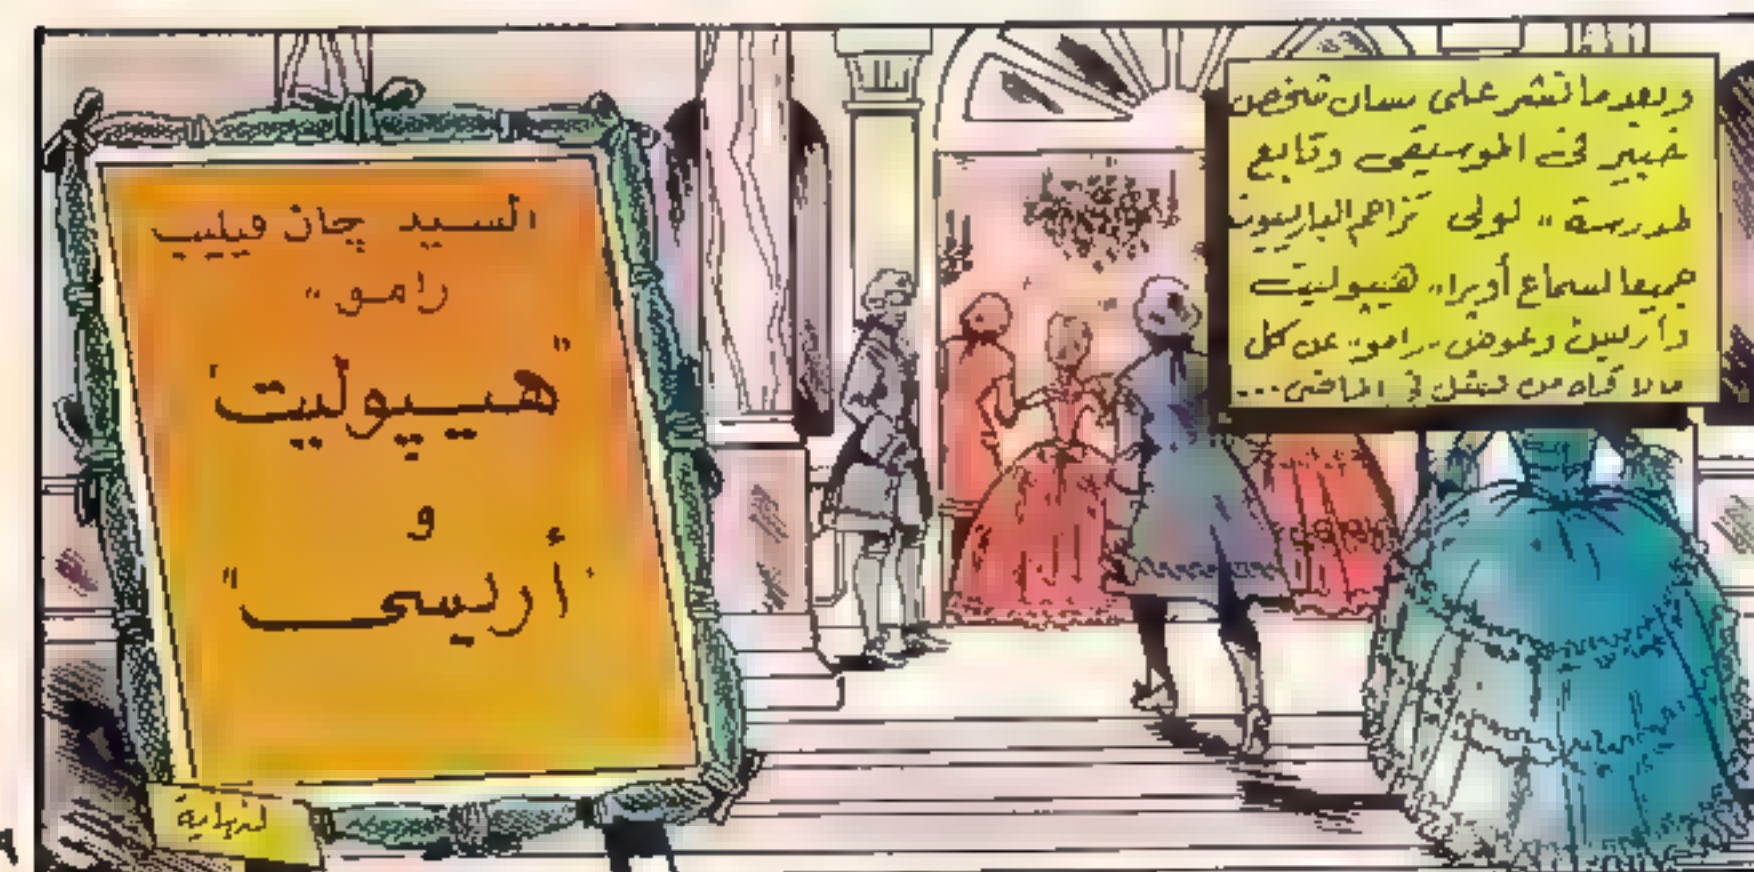 وبعدما نشر على لسان شخص
خبير في الموسيقى وتابع
لمدرسة "لولى" تزاحم الباريسيون
جميعا لسماع أوبرا "هيبوليت
وأريسى" وعوض "رامو" عن كل
ما لاقاه من فشل في الماضى...
السيد چان فيليب
رامو "
"هيپوليت"
و
"أريسى"
النهاية